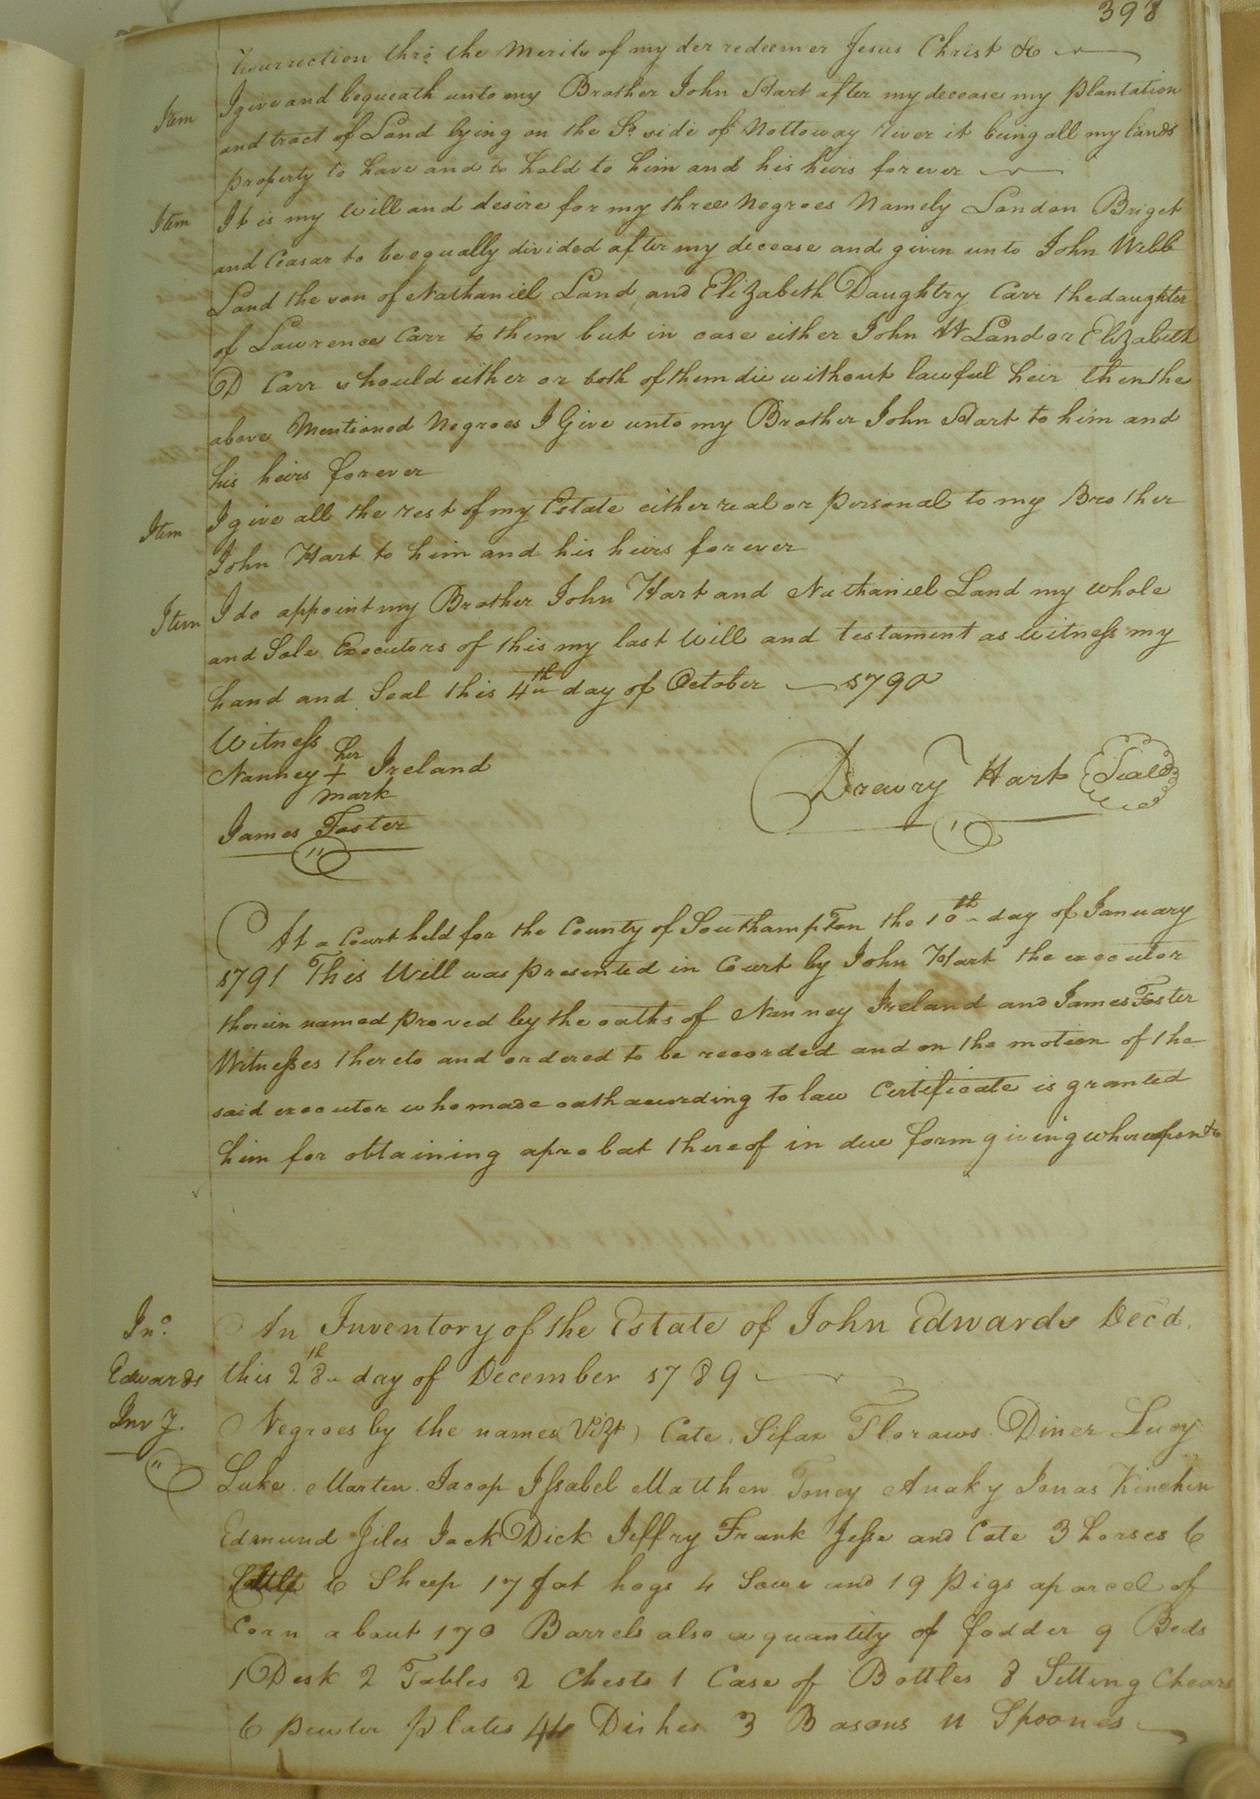 398
resurrection thro the Merits of my der redeemer Jesus Christ &c
Item I give and bequeath unto my Brother John Hart after my decease my plantation
and tract of Land lying on the So. side of Nottoway river it being all my lands
property to have and to hold to him and his heirs forever
Item It is my Will and desire for my three Negroes Namely London Briget
and Ceasar to be equally divided after my decease and given unto John Webb
Land the son of Nathaniel Land and Elizabeth Daughtry Carr the daughter
of Lawrence Carr to them but in case either John W Land or Elizabeth
D Carr should either or both of them die without lawful heir then the
above Mentioned Negroes I Give unto my Brother John Hart to him and
his heirs forever
Item I give all the rest of my Estate either real or personal to my Brother
John Hart to him and his heirs forever
Item I do appoint my Brother John Hart and Nathaniel Land my whole
and Sole Executors of this my last Will and testament as witness my
hand and Seal this 4th day of October 1790
Witness
Nanney her + mark Ireland
James Foster
Drewry Hart Seal
At a Court held for the County of Southampton the 10th day of January
1791 This Will was presented in Court by John Hart the executor
therein named proved by the oaths of Nanney Ireland and James Foster
Witnesses thereto and ordered to be recorded and on the motion of the
said executor who made oath according to law Certificate is granted
him for obtaining a probat thereof in due form giving whereupon &c
Jno. Edwards Invy.
An Inventory of the Estate of John Edwards Dec'd.
this 28th day of December 1789
Negroes by the names (Vizt) Cate Sifax Floraws Diner Lucy
Luke Marten Jacop Issabel Matthew Toney Anaky Jonas Kinchen
Edmund Jiles Jack Dick Jeffry Frank Jesse and Cate 3 horses 6
Cattle 6 Sheep 17 fat hogs 4 Sows and 19 pigs a parcel of
Corn about 170 Barrels also a quantity of fodder 9 Beds
1 Desk 2 Tables 2 Chests 1 Case of Bottles 8 Setting Chears
6 pewter plates 4 Dishes 3 Basons 11 Spoones